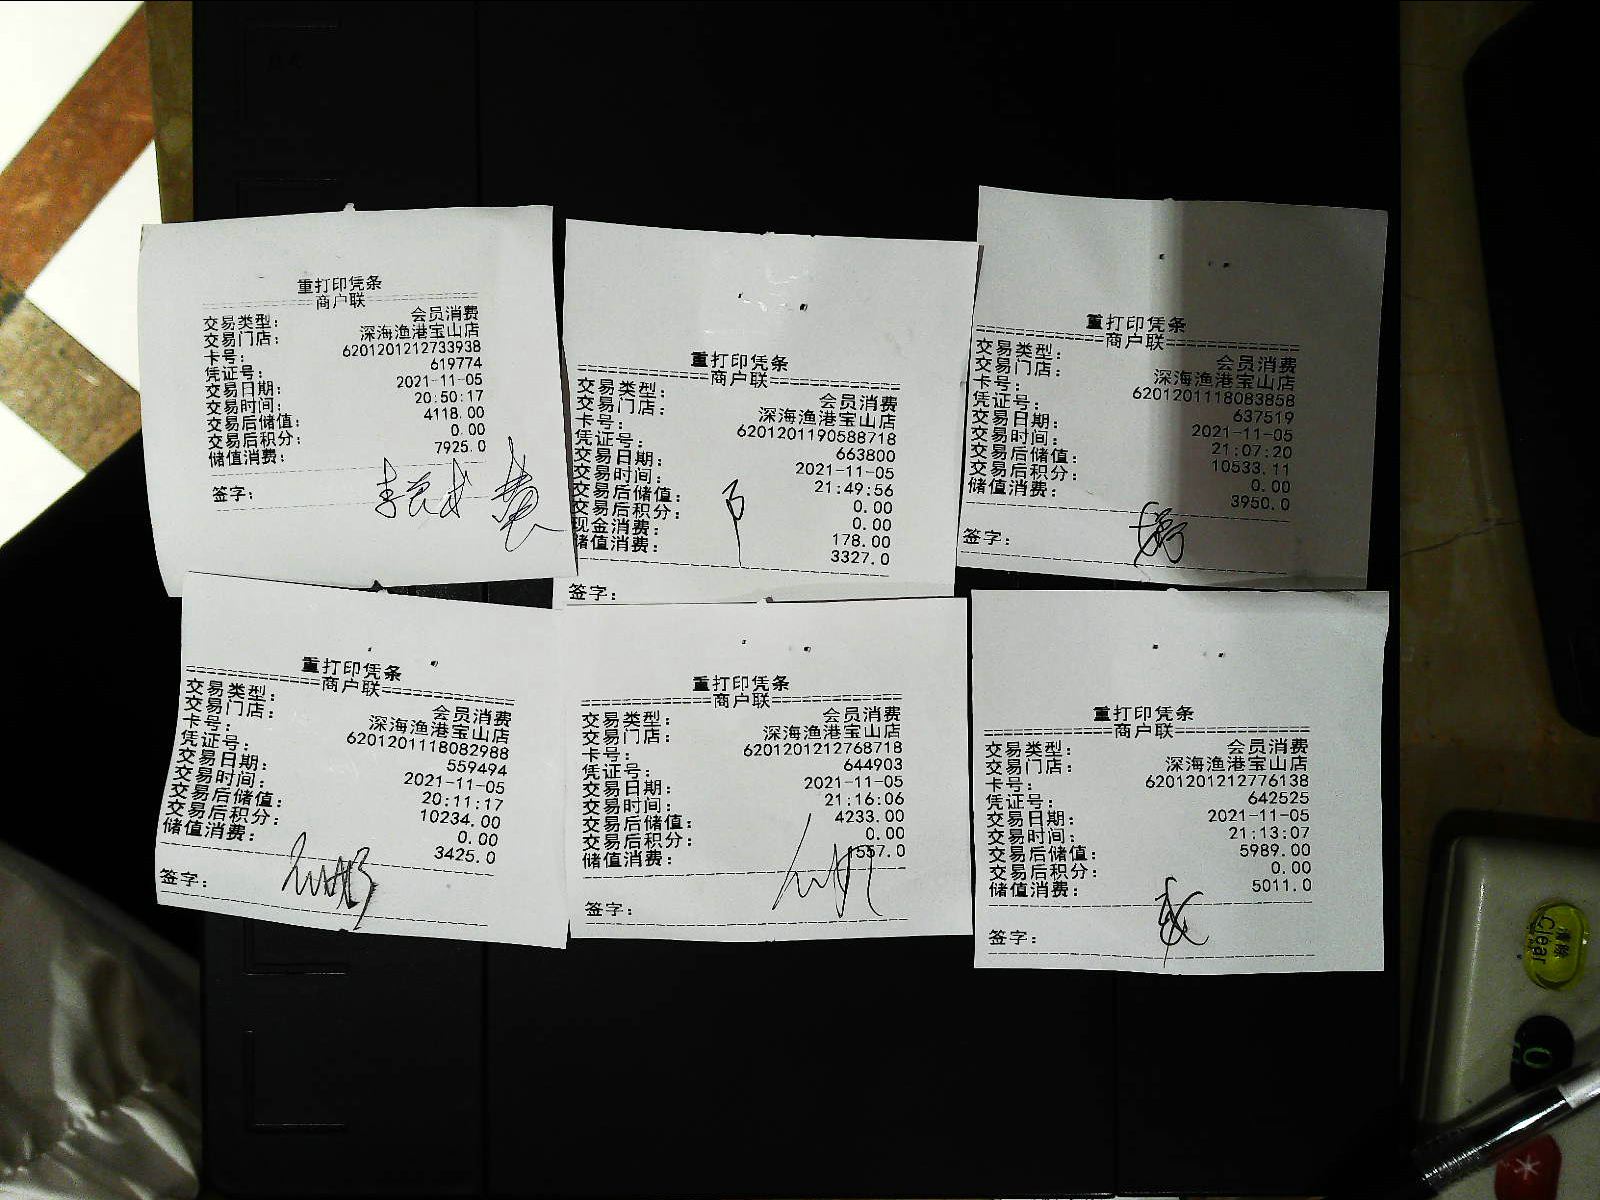 重打印凭条
商户联
交易类型: 会员消费
交易门店: 深海渔港宝山店
卡号: 6201201212733938
凭证号: 619774
交易日期: 2021-11-05
交易时间: 20:50:17
交易后储值: 4118.00
交易后积分: 0.00
储值消费: 7925.0
签字:
重打印凭条
商户联
交易类型: 会员消费
交易门店: 深海渔港宝山店
卡号: 6201201190588718
凭证号: 663800
交易日期: 2021-11-05
交易时间: 21:49:56
交易后储值: 0.00
交易后积分: 0.00
现金消费: 178.00
储值消费: 3327.0
签字:
重打印凭条
商户联
交易类型: 会员消费
交易门店: 深海渔港宝山店
卡号: 6201201118083858
凭证号: 637519
交易日期: 2021-11-05
交易时间: 21:07:20
交易后储值: 10533.11
交易后积分: 0.00
储值消费: 3950.0
签字:
重打印凭条
商户联
交易类型: 会员消费
交易门店: 深海渔港宝山店
卡号: 6201201118082988
凭证号: 559494
交易日期: 2021-11-05
交易时间: 20:11:17
交易后储值: 10234.00
交易后积分: 0.00
储值消费: 3425.0
签字:
重打印凭条
商户联
交易类型: 会员消费
交易门店: 深海渔港宝山店
卡号: 6201201212768718
凭证号: 644903
交易日期: 2021-11-05
交易时间: 21:16:06
交易后储值: 4233.00
交易后积分: 0.00
储值消费:
签字:
重打印凭条
商户联
交易类型: 会员消费
交易门店: 深海渔港宝山店
卡号: 6201201212776138
凭证号: 642525
交易日期: 2021-11-05
交易时间: 21:13:07
交易后储值: 5989.00
交易后积分: 0.00
储值消费: 5011.0
签字:
清除
Clear
0
*